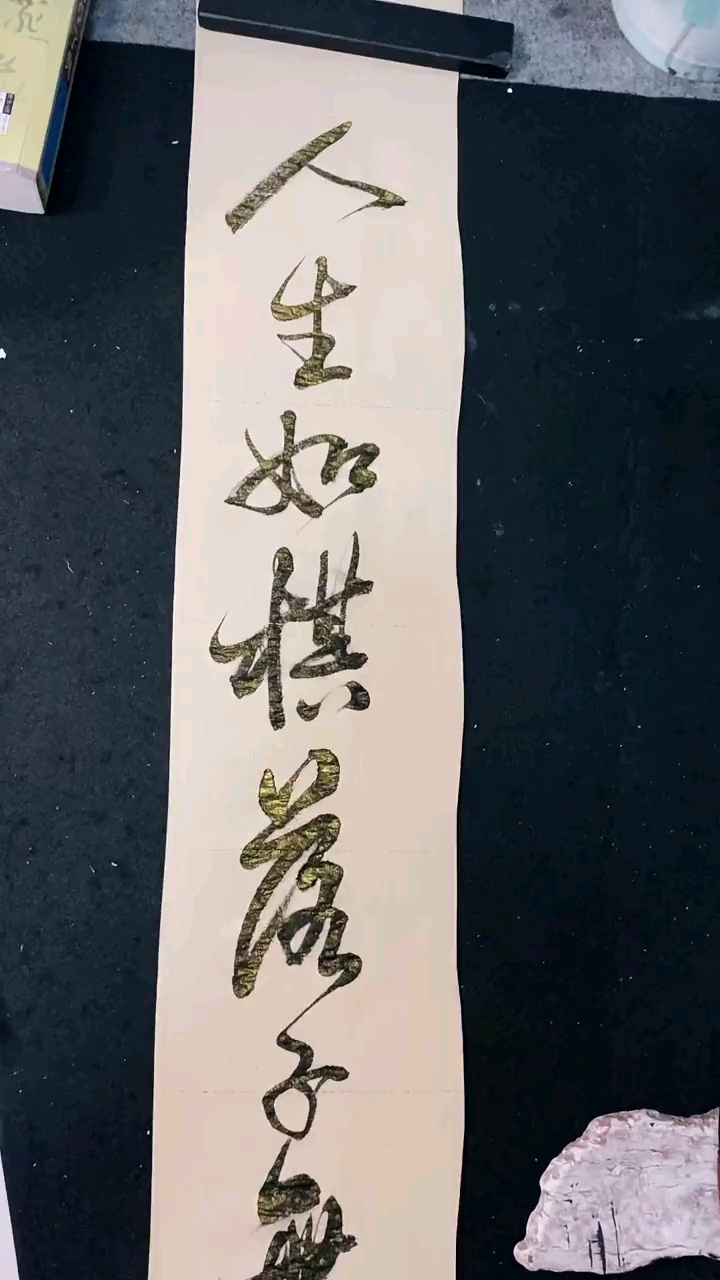 人生如棋落子無